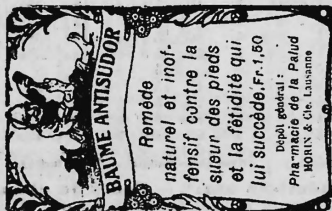 BAUME ANTISUDOR
Remède
naturel et inof-
fensif contre la
sueur des pieds
et la fétidité qui
lui succède. Fr. 1,50
Dépôt général:
Pharmacie de la Palud
MORIN & Cie, Lausanne